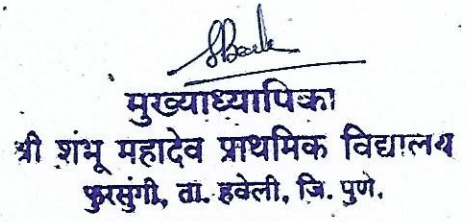 मुख्याध्यापिका
श्री शंभू महादेव प्राथमिक विद्यालय
फुरसुंगी, ता. हवेली, जि. पुणे.